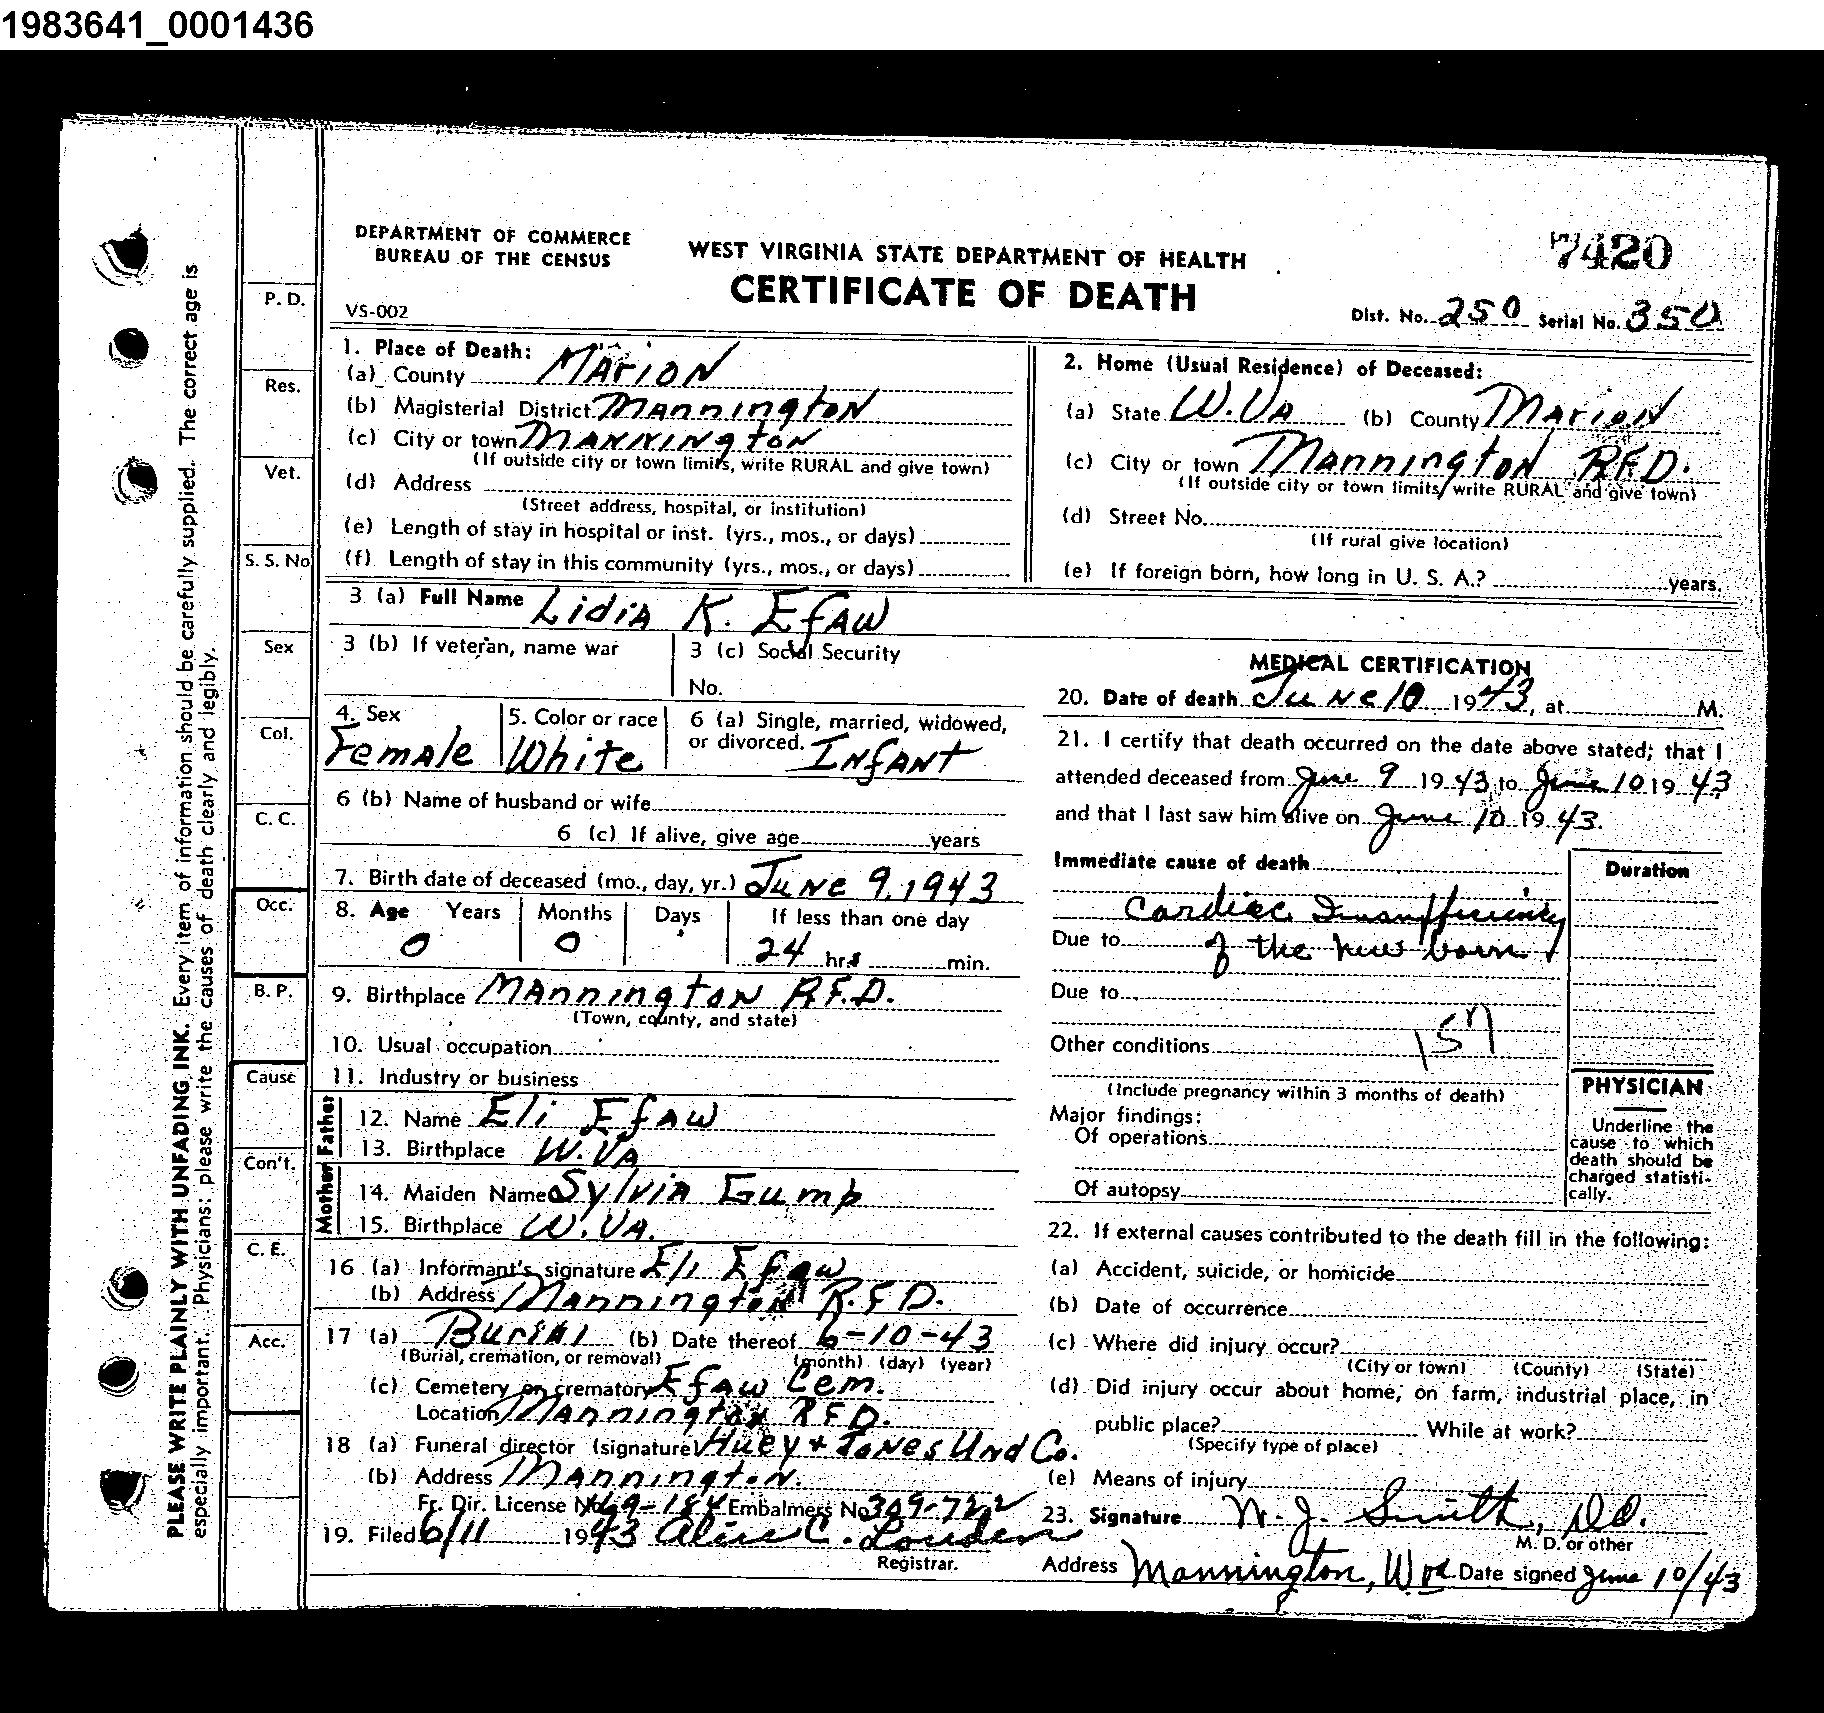 1983641_0001436
PLEASE WRITE PLAINLY WITH UNFADING INK. Every item of information should be carefully supplied. The correct age is
especially important. Physicians: please write the causes of death clearly and legibly.
P. D.
Res.
Vet.
S. S. No
Sex
Col.
C. C.
Occ.
B. P.
Cause
Con't.
C. E.
Acc.
DEPARTMENT OF COMMERCE
BUREAU OF THE CENSUS
VS-002
WEST VIRGINIA STATE DEPARTMENT OF HEALTH
CERTIFICATE OF DEATH
7420
Dist. No. 250 Serial No. 350
1. Place of Death:
(a) County Marion
(b) Magisterial District Mannington
(c) City or town Mannington
(If outside city or town limits, write RURAL and give town)
(d) Address
(Street address, hospital, or institution)
(e) Length of stay in hospital or inst. (yrs., mos., or days)
(f) Length of stay in this community (yrs., mos., or days)
2. Home (Usual Residence) of Deceased:
(a) State W. Va (b) County Marion
(c) City or town Mannington R.F.D.
(If outside city or town limits, write RURAL and give town)
(d) Street No.
(If rural give location)
(e) If foreign born, how long in U. S. A.? years.
3 (a) Full Name Lidia K. Efaw
3 (b) If veteran, name war
3 (c) Social Security
No.
4. Sex
Female
5. Color or race
White
6 (a) Single, married, widowed,
or divorced. Infant
6 (b) Name of husband or wife
6 (c) If alive, give age years
7. Birth date of deceased (mo., day, yr.) June 9, 1943
8. Age Years Months Days If less than one day
0 0 24 hrs min.
9. Birthplace Mannington R.F.D.
(Town, county, and state)
10. Usual occupation
11. Industry or business
Father
12. Name Eli Efaw
13. Birthplace W. Va
Mother
14. Maiden Name Sylvia Gump
15. Birthplace W. Va.
16 (a) Informant's signature Eli Efaw
(b) Address Mannington R.F.D.
17 (a) Burial (b) Date thereof 6-10-43
(Burial, cremation, or removal) (month) (day) (year)
(c) Cemetery or crematory Efaw Cem.
Location Mannington R.F.D.
18 (a) Funeral director (signature) Huey + Jones Und Co.
(b) Address Mannington.
Fr. Dir. License No. Embalmers No. 309-722
19. Filed 6/11 1943 Alice C. Louden
Registrar.
MEDICAL CERTIFICATION
20. Date of death June 10 1943, at M.
21. I certify that death occurred on the date above stated; that I
attended deceased from June 9 1943 to June 10 1943
and that I last saw him alive on June 10 1943.
Immediate cause of death
Duration
Cardiac Insufficiency
Due to of the new born
Due to
157
Other conditions
(Include pregnancy within 3 months of death)
Major findings:
Of operations
Of autopsy
PHYSICIAN
Underline the
cause to which
death should be
charged statisti-
cally.
22. If external causes contributed to the death fill in the following:
(a) Accident, suicide, or homicide
(b) Date of occurrence
(c) Where did injury occur?
(City or town) (County) (State)
(d) Did injury occur about home, on farm, industrial place, in
public place? While at work?
(Specify type of place)
(e) Means of injury
23. Signature W. J. Smith, DO.
M. D. or other
Address Mannington, W Va Date signed June 10/43